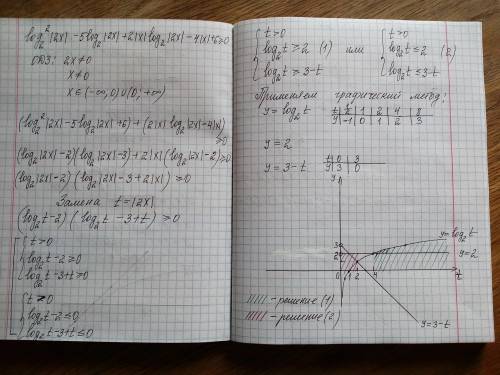 log₂²|2x| - 5log₂|2x| + 2|x|log₂|2x| - 4|x| + 6 ≥ 0
ОДЗ: 2x ≠ 0
x ≠ 0
x ∈ (-∞, 0) ∪ (0, +∞)
(log₂²|2x| - 5log₂|2x| + 6) + (2|x| log₂|2x| - 4|x|) ≥ 0
(log₂|2x| - 2)(log₂|2x| - 3) + 2|x|(log₂|2x| - 2) ≥ 0
(log₂|2x| - 2)(log₂|2x| - 3 + 2|x|) ≥ 0
Замена t = |2x|
(log₂t - 2)(log₂t - 3 + t) ≥ 0
t > 0
log₂t - 2 ≥ 0
log₂t - 3 + t ≥ 0
t > 0
log₂t - 2 ≤ 0
log₂t - 3 + t ≤ 0
t > 0
log₂t ≥ 2 (1)
log₂t ≥ 3 - t
или
t > 0
log₂t ≤ 2 (2)
log₂t ≤ 3 - t
Применяем графический метод:
y = log₂t
t | ½ | 1 | 2 | 4 | 8
y | -1 | 0 | 1 | 2 | 3
y = 2
y = 3 - t
t | 0 | 3
y | 3 | 0
y
3
2
y = log₂t
y = 2
0 1 2 4 t
- решение (1)
- решение (2)
y = 3 - t